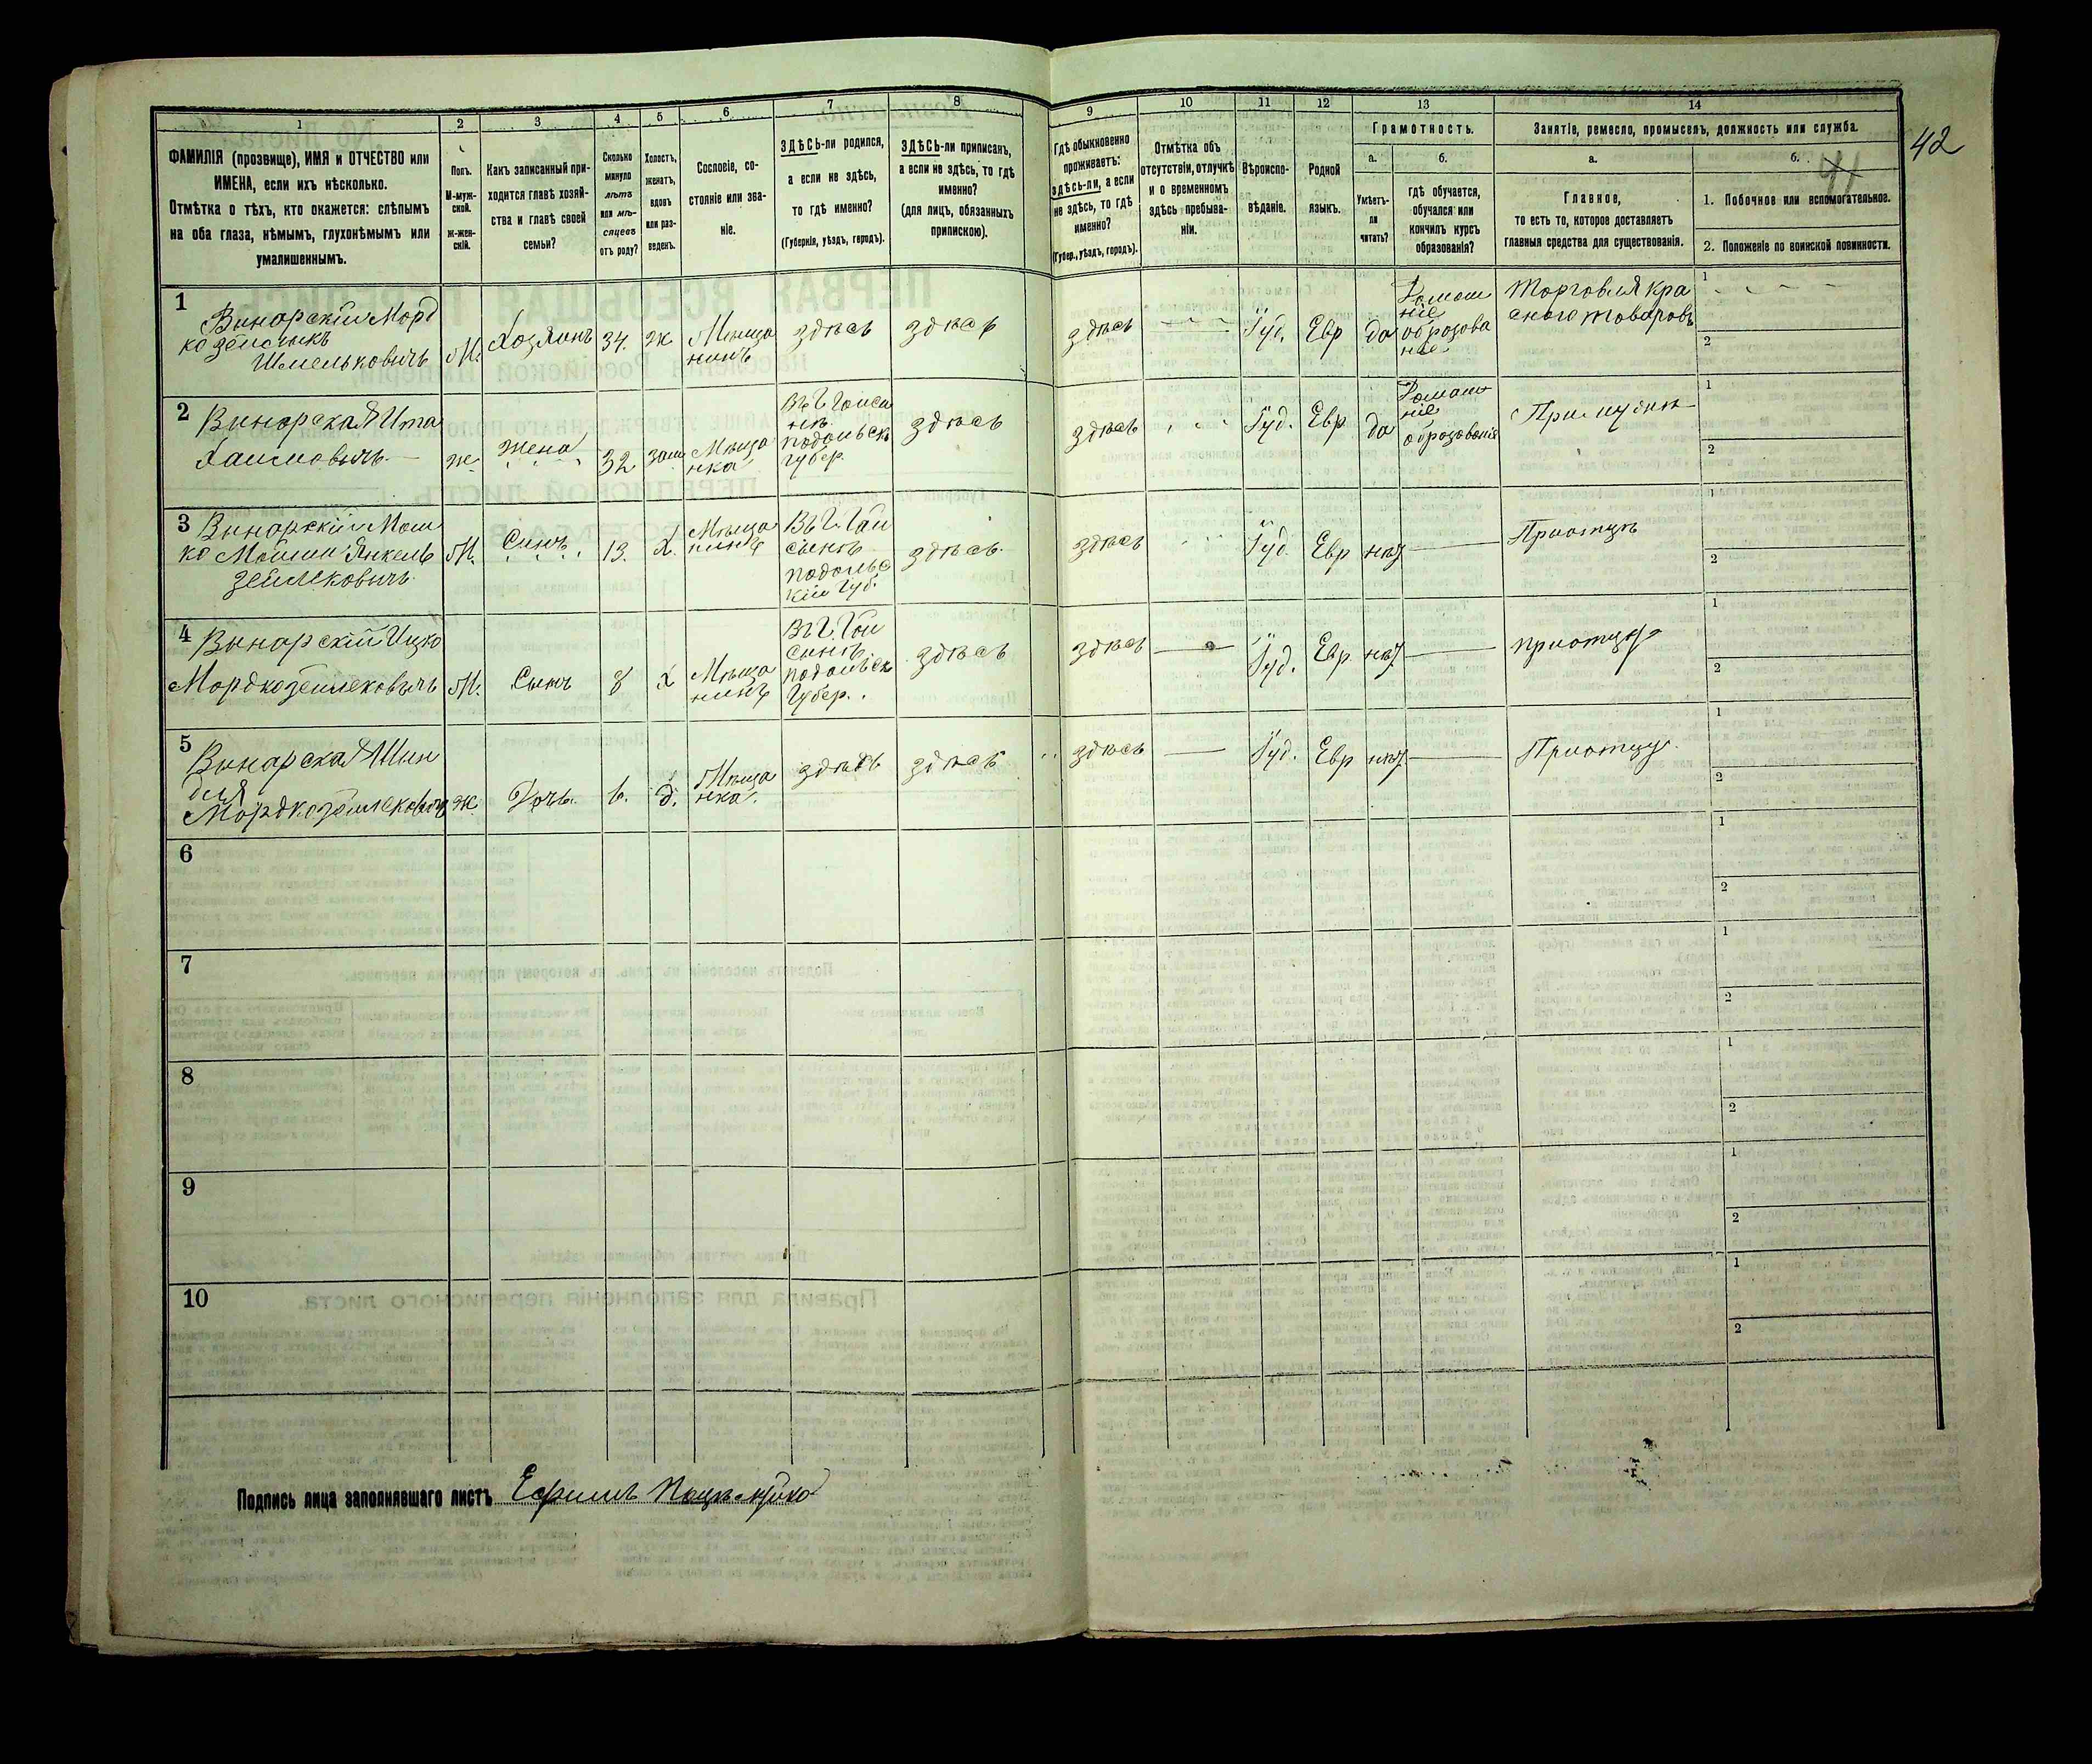 42
41
1 2 3 4 5 6 7 8 9 10 11 12 13 14
ФАМИЛІЯ (прозвище), ИМЯ и ОТЧЕСТВО или
ИМЕНА, если ихъ нѣсколько.
Отмѣтка о тѣхъ, кто окажется: слѣпымъ
на оба глаза, нѣмымъ, глухонѣмымъ или
умалишеннымъ.
Полъ.
М-муж-
ской.
Ж-жен-
скій.
Какъ записанный при-
ходится главѣ хозяй-
ства и главѣ своей
семьи?
Сколько
минуло
лѣтъ
или мѣ-
сяцевъ
отъ роду?
Холостъ,
женатъ,
вдовъ
или раз-
веденъ.
Сословіе, со-
стояніе или зва-
ніе.
ЗДѢСЬ-ли родился,
а если не здѣсь,
то гдѣ именно?
(Губернія, уѣздъ, городъ).
ЗДѢСЬ-ли приписанъ,
а если не здѣсь, то гдѣ
именно?
(для лицъ, обязанныхъ
припискою).
Гдѣ обыкновенно
проживаетъ:
здѣсь-ли, а если
не здѣсь, то гдѣ
именно?
(Губер., уѣздъ, городъ).
Отмѣтка объ
отсутствіи, отлучкѣ
и о временномъ
здѣсь пребыва-
ніи.
Вѣроиспо-
вѣданіе.
Родной
языкъ.
Грамотность.
а.
Умѣетъ-
ли
читать?
б.
гдѣ обучается,
обучался или
кончилъ курсъ
образованія?
Занятіе, ремесло, промыселъ, должность или служба.
а.
Главное,
то есть то, которое доставляетъ
главныя средства для существованія.
б.
1. Побочное или вспомогательное.
2. Положеніе по воинской повинности.
1
Винарскій Морд
ко
Шмельковичъ
М.
Хозяинъ
34.
ж
Мѣща
нинъ
здѣсь
здѣсь
здѣсь
Іуд.
Евр
да
Домаш
ніе
образова
ніе
Торговля кра
снаго товаровъ
1
2
2
Винарская Ита
Хаимовичъ
ж
Жена
32
зам
Мѣща
нка
Въ Г. Гайси
нѣ
подольск
губер.
здѣсь
здѣсь
Іуд.
Евр
да
Домаш
ніе
образованія
При мужѣ
1
2
3
Винарскій Мош
ко Янкель
Зейлековичъ.
М.
Сынъ
13.
Х.
Мѣща
нинъ
Въ Г. Гай
сынѣ
подольс
кій Губ.
здѣсь.
здѣсь
Іуд.
Евр
нѣт
При отцѣ
1
2
4
Винарскій Ицко
Мордкозейлековичъ
М.
Сынъ
8
Х
Мѣща
нинъ
Въ Г. Гай
синѣ
подольск
Губер.
здѣсь
здѣсь
Іуд.
Евр
нѣт
при отцу
1
2
5
Винарская Шин
для
Мордкозейлековичъ
ж
Дочь.
6.
д.
Мѣща
нка.
здѣсь
здѣсь
здѣсь
Іуд.
Евр
нѣт
При отцу.
1
2
6
1
2
7
1
2
8
1
2
9
1
2
10
1
2
Подпись лица заполнявшаго листъ Ефимъ